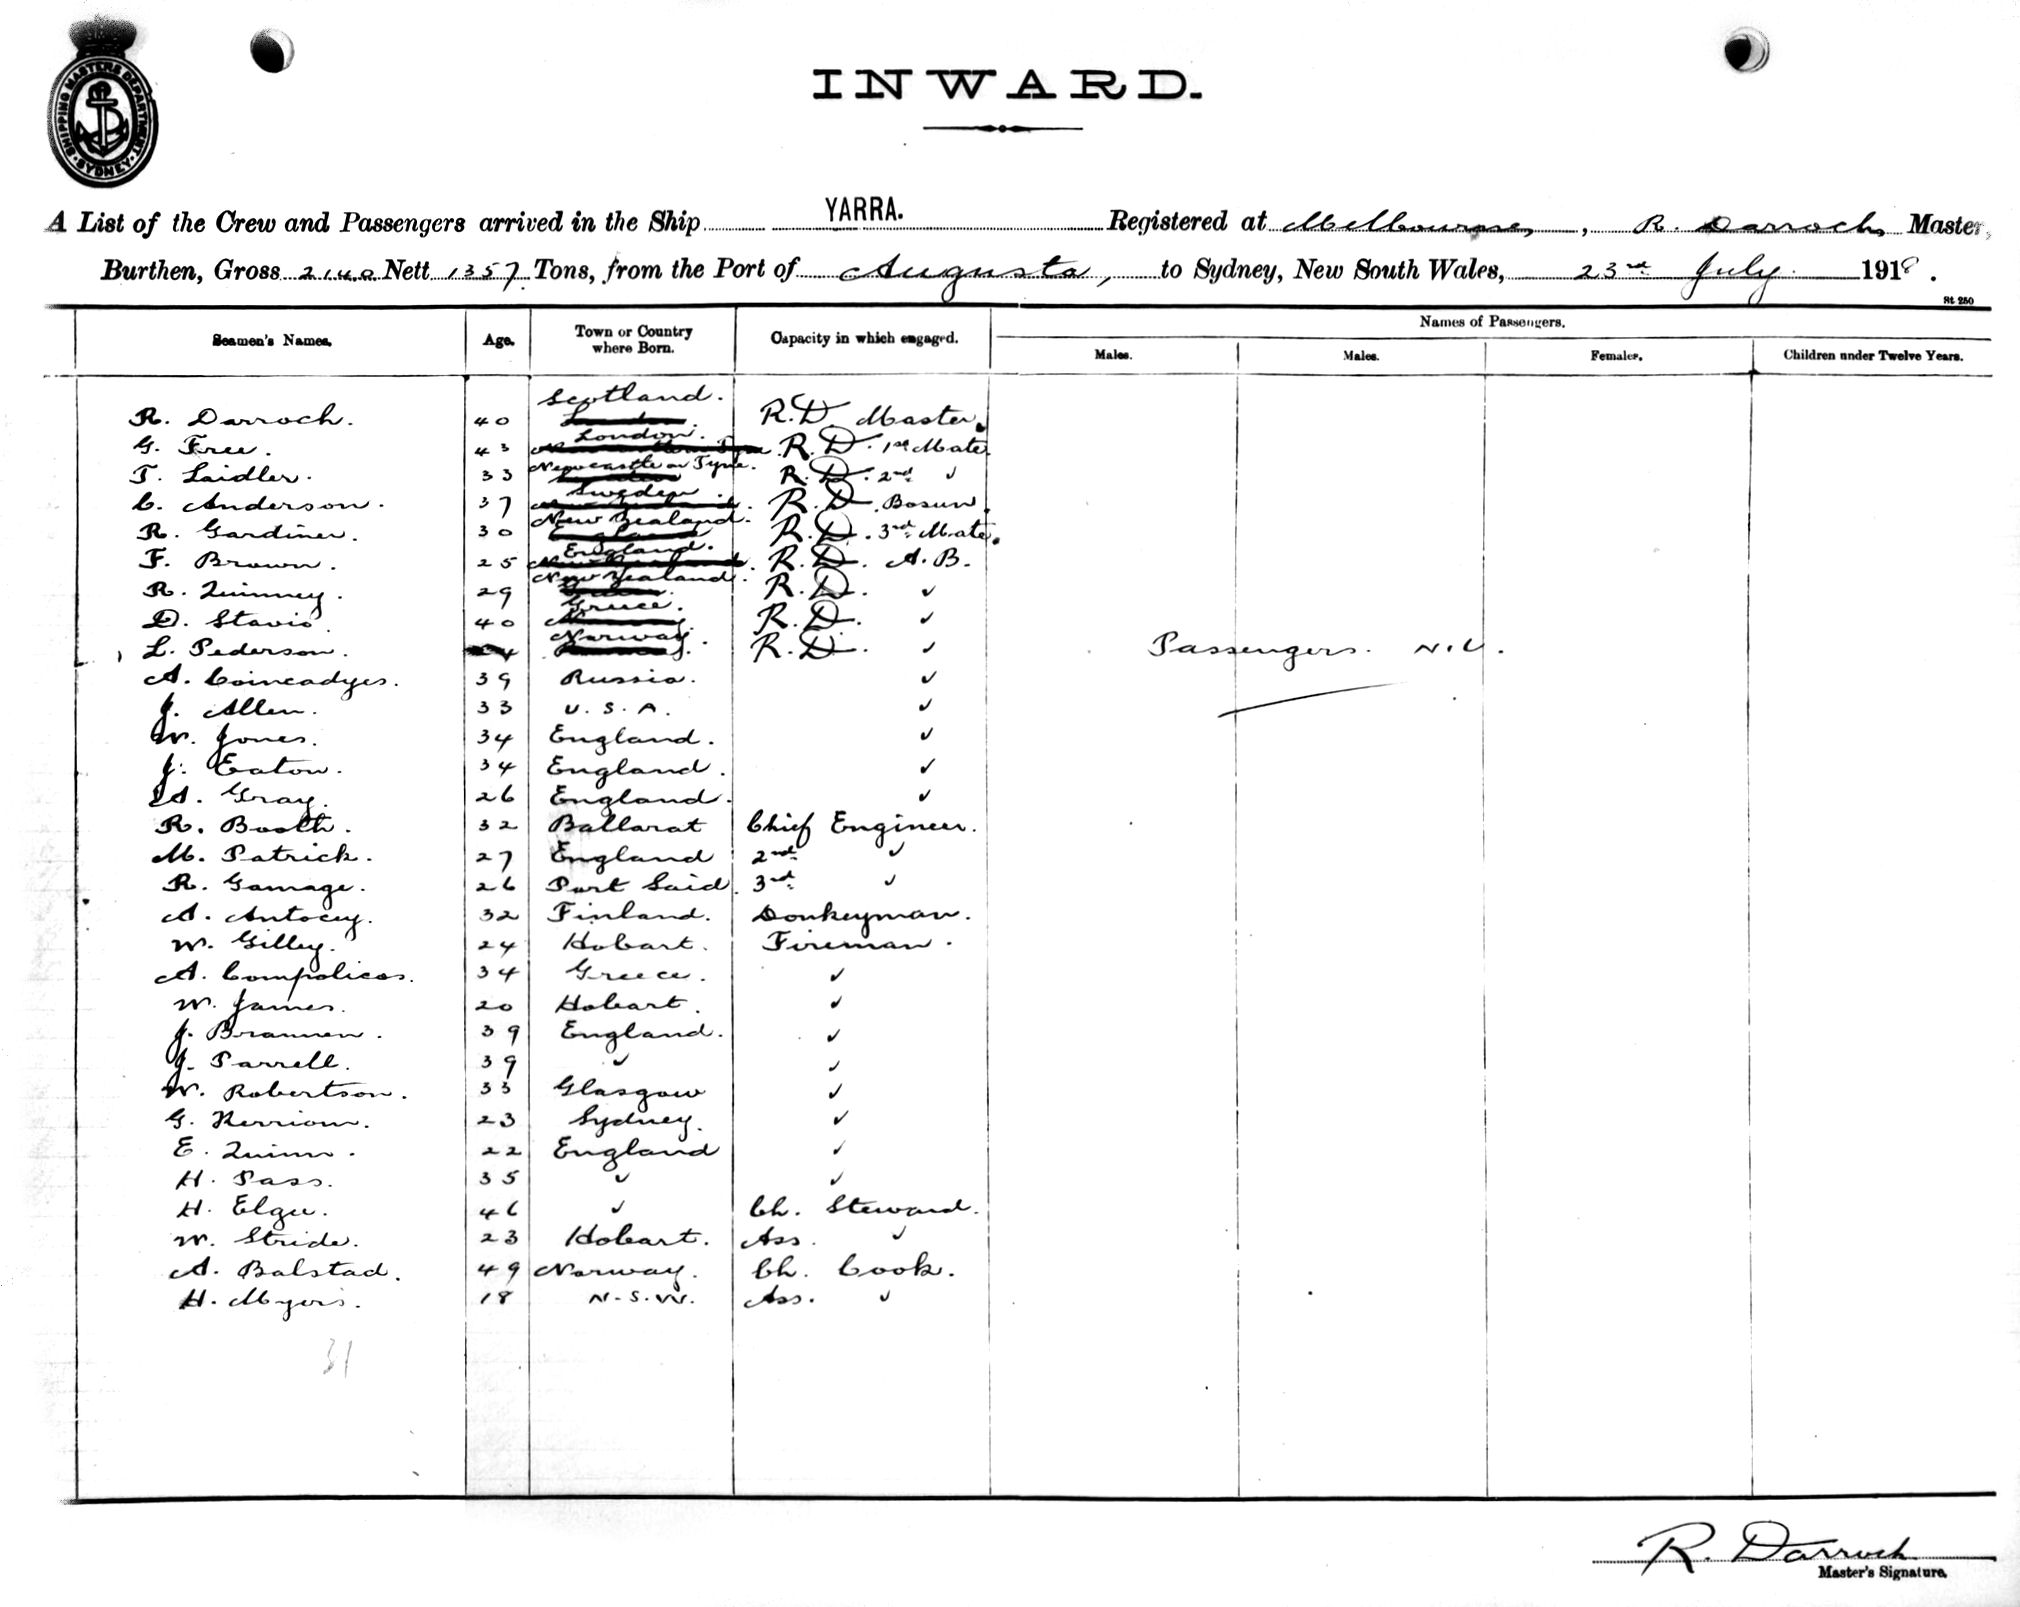 SHIPPING MASTERS DEPARTMENT. SYDNEY.
INWARD.
A List of the Crew and Passengers arrived in the Ship YARRA. Registered at Melbourne, R. Darroch, Master,
Burthen, Gross 2140 Nett 1357 Tons, from the Port of Augusta, to Sydney, New South Wales, 23rd July 1918.
St 250
Seamen's Names. Age. Town or Country where Born. Capacity in which engaged. Names of Passengers.
Males. Males. Females. Children under Twelve Years.
R. Darroch. 40 Scotland. R.D. Master.
G. Free. 43 London. R.D. 1st Mate
T. Laidler. 33 Newcastle on Tyne. R.D. 2nd "
C. Anderson. 37 Sweden. R.D. Bosun.
R. Gardiner. 30 New Zealand. R.D. 3rd Mate.
F. Brown. 25 England. R.D. A.B.
R. Quinney. 29 New Zealand. R.D. "
D. Stavio. 40 Greece. R.D. "
L. Pederson. Norway. R.D. "
Passengers. Nil.
A. Coincadyes. 39 Russia. "
J. Allen. 33 U.S.A. "
W. Jones. 34 England. "
J. Eaton. 34 England. "
A. Gray. 26 England. "
R. Booth. 32 Ballarat Chief Engineer.
M. Patrick. 27 England 2nd "
R. Gamage. 26 Port Said. 3rd "
A. Antocey. 32 Finland. Donkeyman.
W. Gilley. 24 Hobart. Fireman.
A. Compolicos. 34 Greece. "
W. James. 20 Hobart. "
J. Brannen. 39 England. "
J. Parrell. 39 " "
W. Robertson. 33 Glasgow "
G. Kerriom. 23 Sydney. "
E. Quinn. 22 England "
H. Pass. 35 " "
H. Elgee. 46 " Ch. Steward.
W. Stride. 23 Hobart. Ass. "
A. Balstad. 49 Norway. Ch. Cook.
H. Myers. 18 N.S.W. Ass. "
31
R. Darroch
Master's Signature.